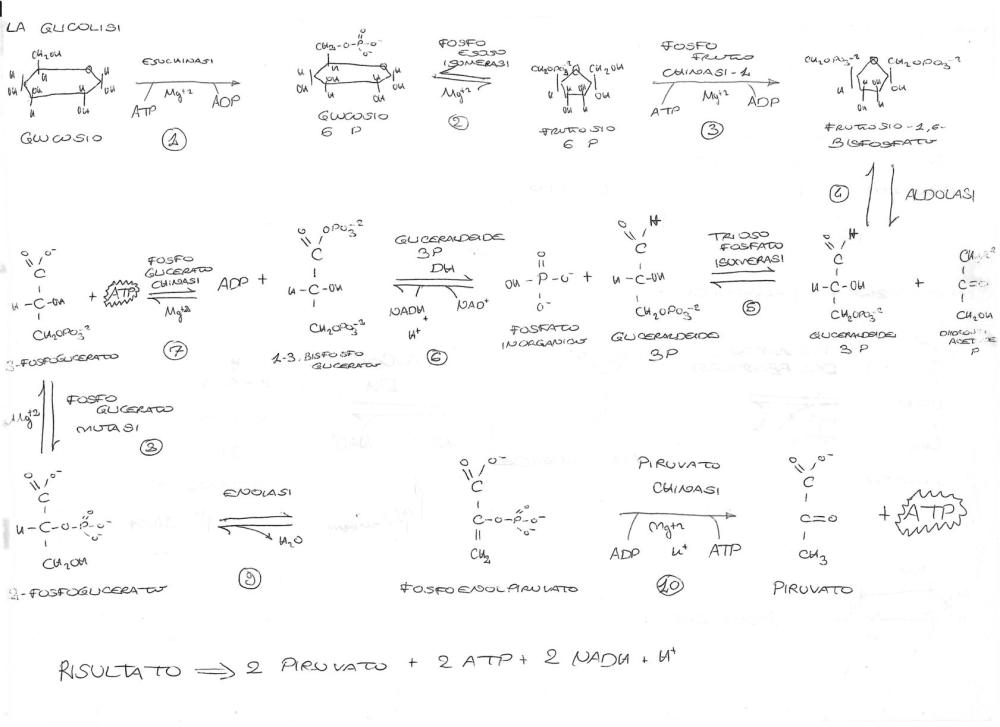 LA GLICOLISI
CH₂OH
O
H H H
OH OH H OH
H OH
GLUCOSIO
ESOCHINASI
ATP Mg+2 ADP
1
CH₂-O-P-O⁻
O
O⁻
O
H H H
OH OH H OH
H OH
GLUCOSIO
6 P
FOSFO
ESOSO
ISOMERASI
Mg+2
2
CH₂OPO₃-2 O CH₂OH
H H OH OH
OH H
FRUTTOSIO
6 P
FOSFO
FRUTTO
CHINASI-1
ATP Mg+2 ADP
3
CH₂OPO₃-2 O CH₂OPO₃-2
H H OH OH
OH H
FRUTTOSIO-1,6-
BISFOSFATO
4 ALDOLASI
O O⁻
C
H-C-OH
CH₂OPO₃-2
3-FOSFOGLICERATO
+ ATP
FOSFO
GLICERATO
CHINASI
Mg+2
7
ADP +
O OPO₃-2
C
H-C-OH
CH₂OPO₃-2
1-3. BISFOSFO
GLICERATO
GLICERALDEIDE
3P
DH
NADH NAD⁺
H⁺
6
O
OH-P-O⁻
O⁻
FOSFATO
INORGANICO
+
O H
C
H-C-OH
CH₂OPO₃-2
GLICERALDEIDE
3P
TRIOSO
FOSFATO
ISOMERASI
5
O H
C
H-C-OH
CH₂OPO₃-2
GLICERALDEIDE
3 P
+
C=O
CH₂OH
P
Mg+2
FOSFO
GLICERATO
MUTASI
8
O O⁻
C
O
H-C-O-P-O⁻
O⁻
CH₂OH
2-FOSFOGLICERATO
ENOLASI
H₂O
9
O O⁻
C
O
C-O-P-O⁻
O⁻
CH₂
FOSFOENOLPIRUVATO
PIRUVATO
CHINASI
Mg+2
ADP H⁺ ATP
10
O O⁻
C
C=O
CH₃
PIRUVATO
+ ATP
RISULTATO ⟹ 2 PIRUVATO + 2 ATP + 2 NADH + H⁺